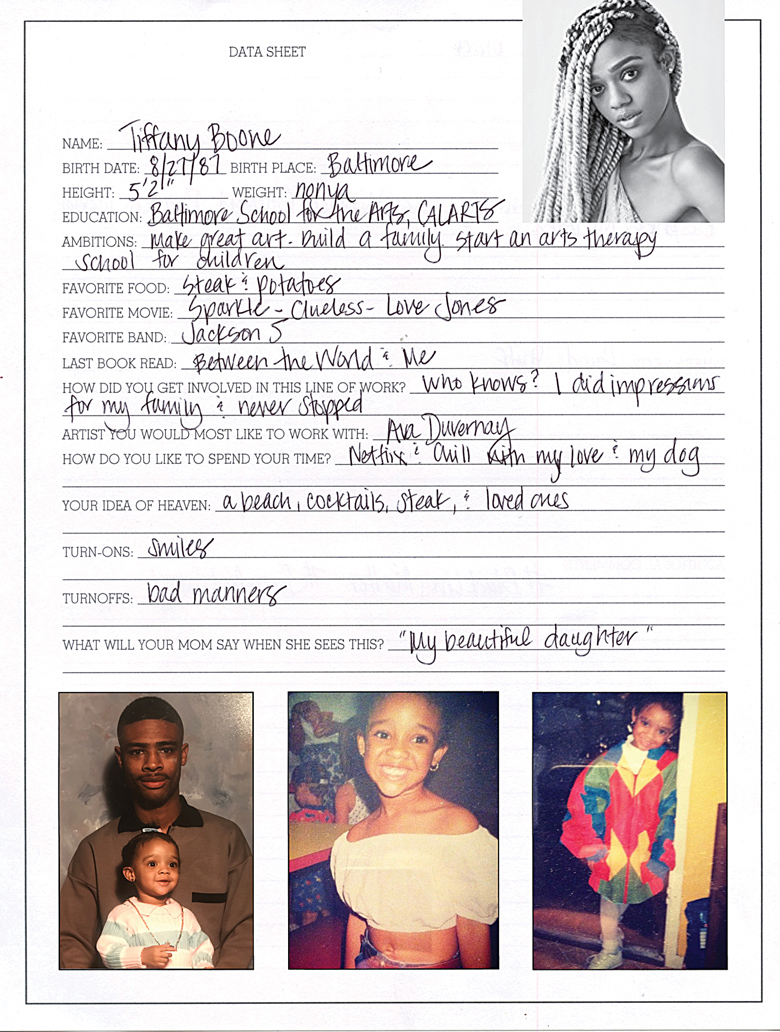 DATA SHEET
NAME: Tiffany Boone
BIRTH DATE: 8/27/87 BIRTH PLACE: Baltimore
HEIGHT: 5'2" WEIGHT: nonya
EDUCATION: Baltimore School for the Arts, CALARTS
AMBITIONS: make great art. build a family. start an arts therapy
school for children
FAVORITE FOOD: steak & potatoes
FAVORITE MOVIE: Sparkle - Clueless - Love Jones
FAVORITE BAND: Jackson 5
LAST BOOK READ: Between the World & Me
HOW DID YOU GET INVOLVED IN THIS LINE OF WORK? Who knows? I did impressions
for my family & never stopped
ARTIST YOU WOULD MOST LIKE TO WORK WITH: Ava Duvernay
HOW DO YOU LIKE TO SPEND YOUR TIME? Netflix & Chill with my love & my dog
YOUR IDEA OF HEAVEN: a beach, cocktails, steak, & loved ones
TURN-ONS: smiles
TURNOFFS: bad manners
WHAT WILL YOUR MOM SAY WHEN SHE SEES THIS? "My beautiful daughter"